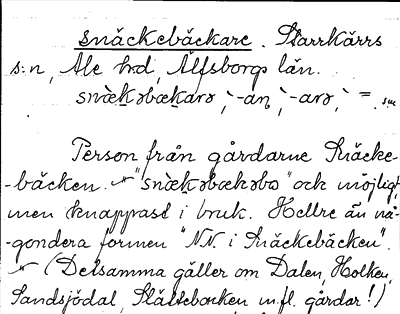 snäckebäckare. Starrkärrs
s:n, Ale hrd, Älfsborgs län.
snækəbækarə, -an, -arə, =.
Person från gårdarne Snäcke-
-bäcken. "snækəbækəbo" och möjligt
men knappast i bruk. Hellre än nå-
-gondera formen "N.N. i Snäckebäcken".
(Detsamma gäller om Dalen, Holken,
Sandsjödal, Slättebacken m.fl. gårdar!)